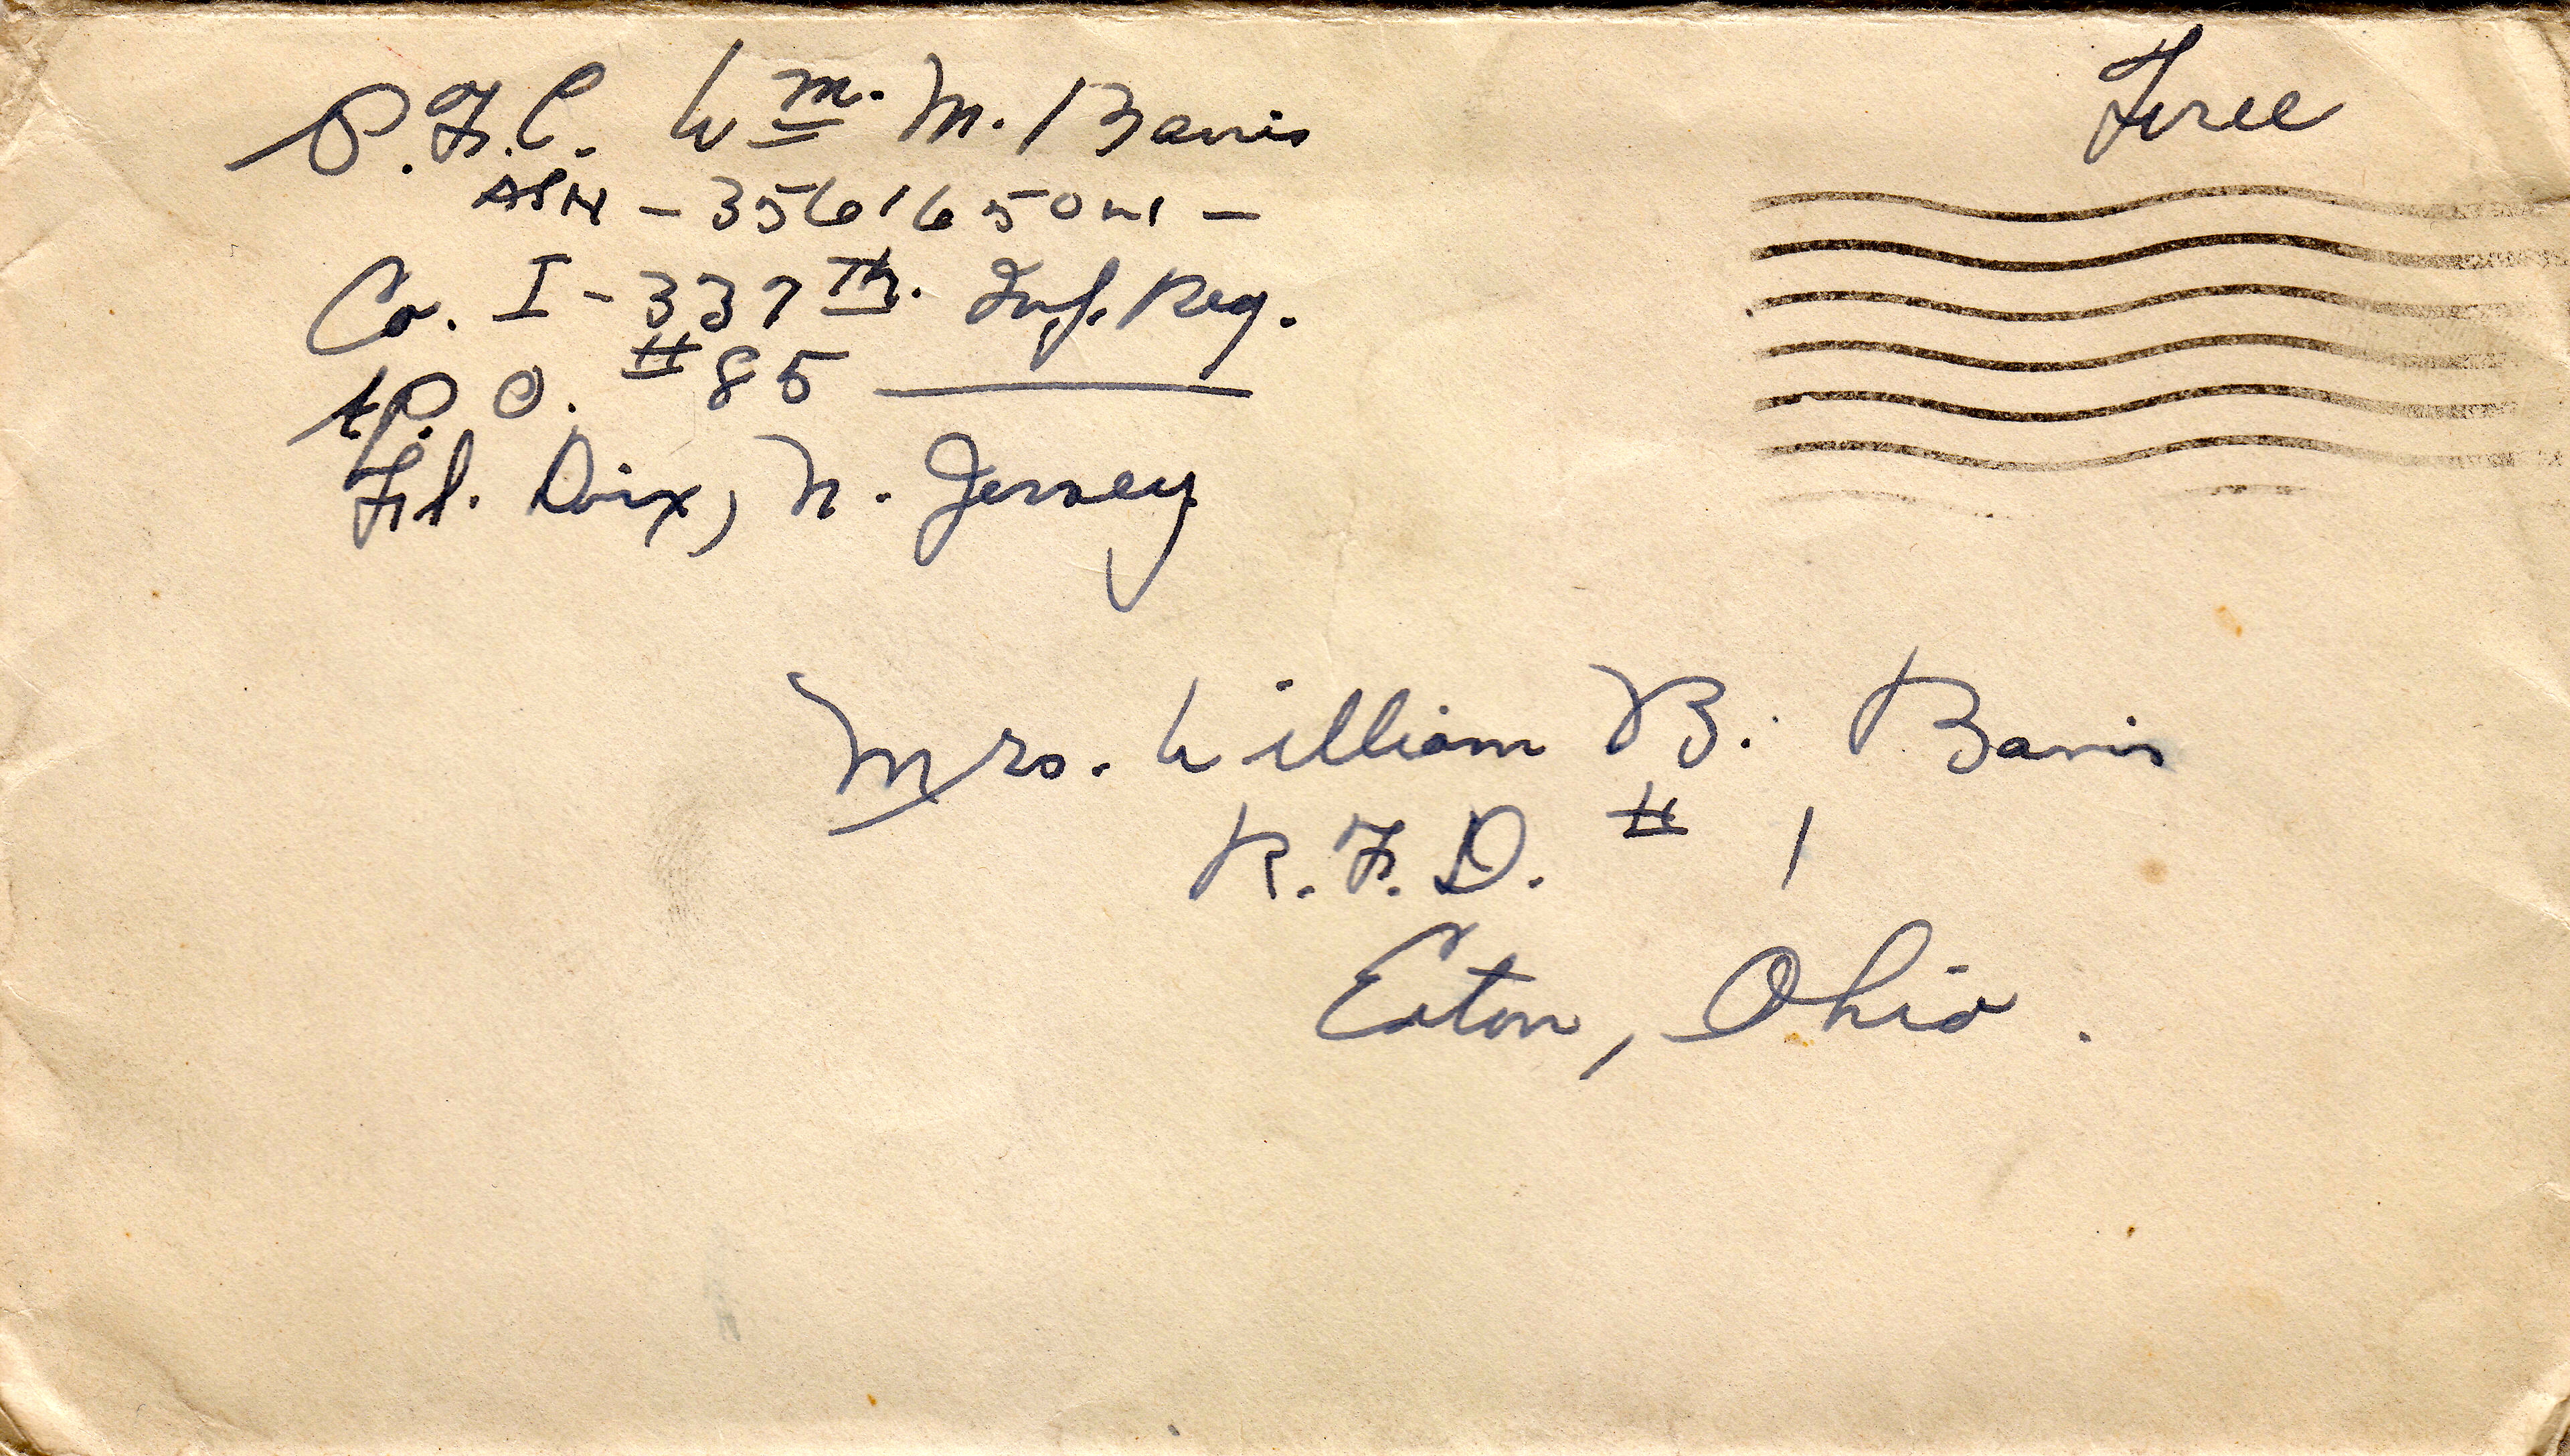 P.F.C. Wm. M. Banis
ASN -
Co. I - 337th. Inf. Reg.
A.P.O. #85
Ft. Dix, N. Jersey
Free
Mrs. William B. Banis
R.F.D. # 1
Eaton, Ohio.